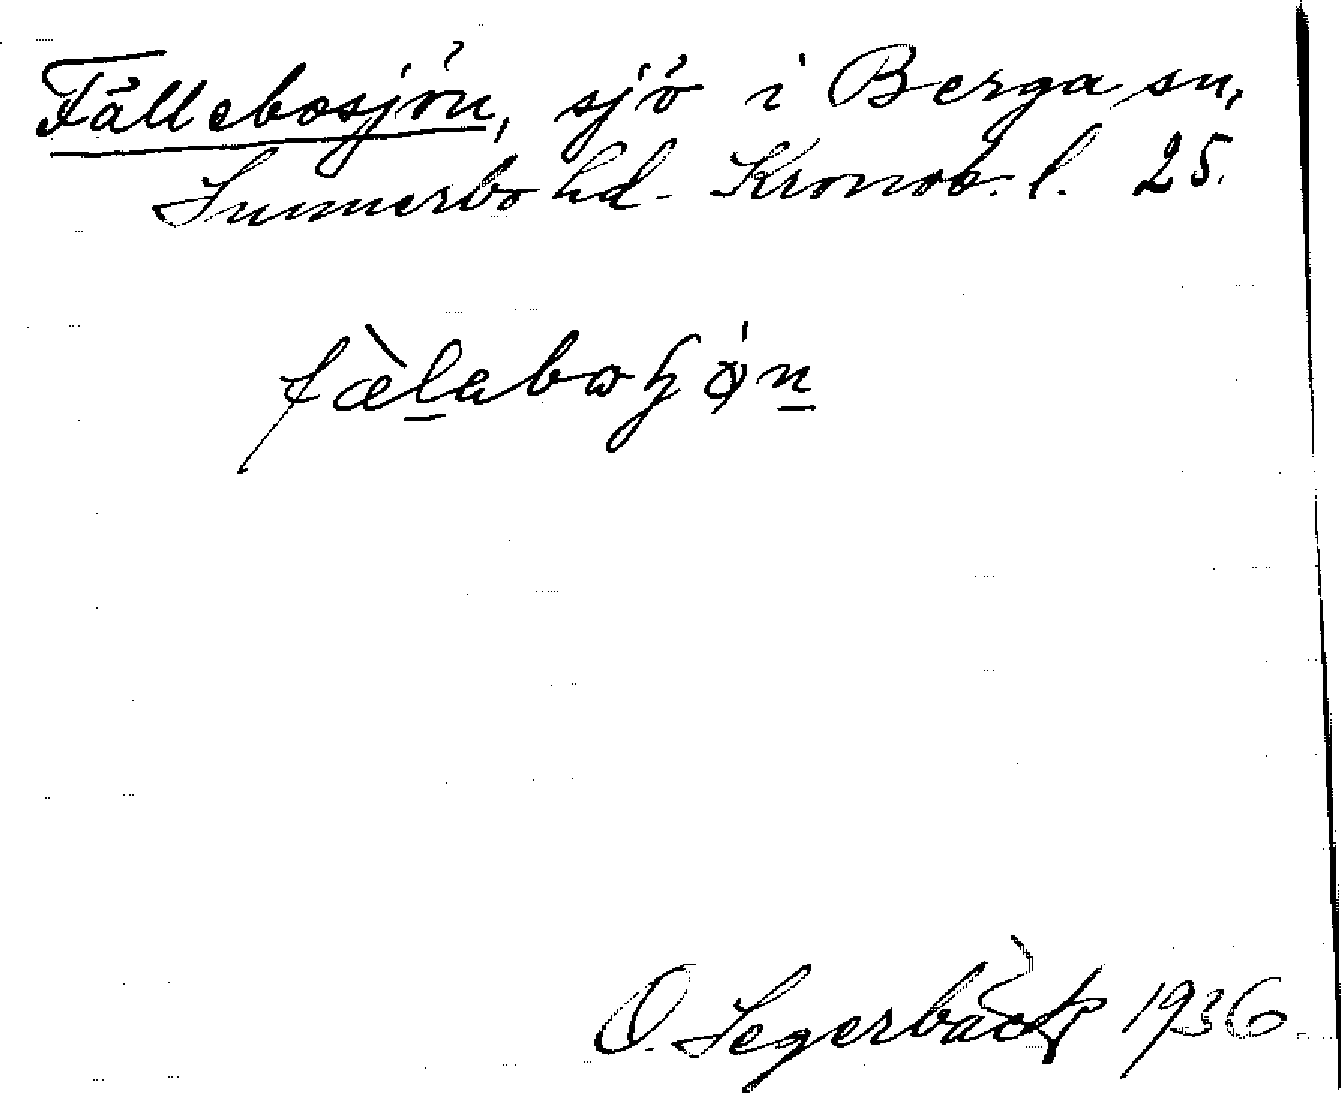 Fällebosjön, sjö i Berga sn,
Sunnerbo hd. Kronob. l. 25.
fæ̀laboɧǿn
O. Segerbäck 1936